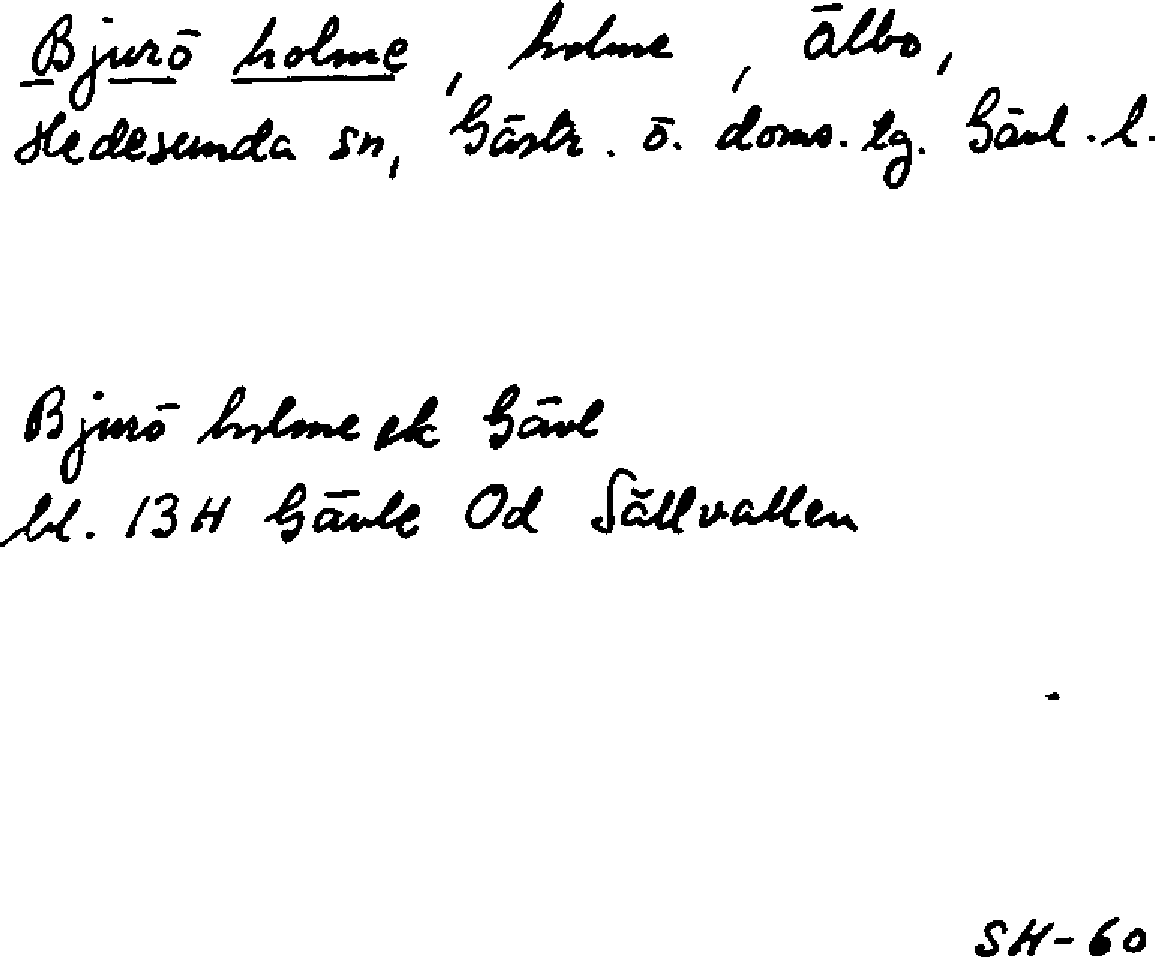 Bjurö holme, holme, Ålbo,
Hedesunda sn, Gästr. ö. doms. tg. Gävl. l.
Bjurö holme ek Gävl
bl. 13H Gävle 0d Sällvallen
SH-60